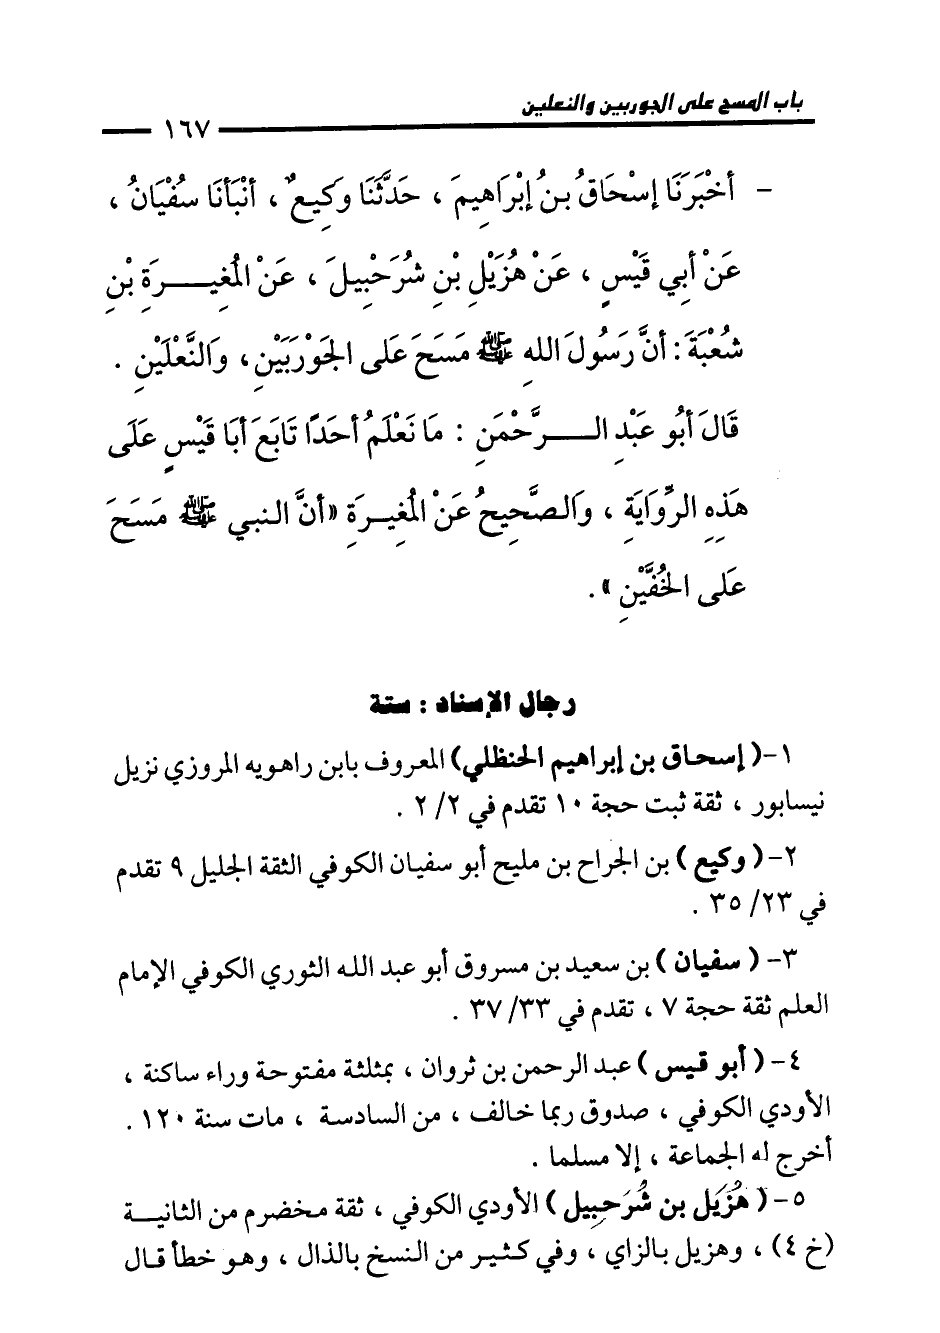 باب المسح على الجوربين والنعلين
١٦٧
- أَخْبَرَنَا إِسْحَاقُ بنُ إِبْرَاهِيمَ ، حَدَّثَنَا وَكِيعٌ ، أَنْبَأَنَا سُفْيَانُ ،
عَنْ أَبِي قَيْسٍ ، عَنْ هُزَيْلِ بْنِ شُرَحْبِيلَ ، عَنْ الْمُغِيـــرَةِ بْنِ
شُعْبَةَ : أَنَّ رَسُولَ اللهِ ﷺ مَسَحَ عَلى الجَوْرَبَيْنِ ، وَالنَّعْلَيْنِ .
قَالَ أَبُو عَبْدِ الـــرَّحْمَنِ : مَا نَعْلَمُ أَحَدًا تَابَعَ أَبَا قَيْسٍ عَلَى
هَذِهِ الرِّوَايَةِ ، وَالصَّحِيحُ عَنْ الْمُغِيـرَةِ «أَنَّ النبي ﷺ مَسَحَ
عَلَى الخُفَّيْنِ» .
رجال الإسناد : ستة
١-( إسحاق بن إبراهيم الحنظلي) المعروف بابن راهويه المروزي نزيل
نيسابور ، ثقة ثبت حجة ١٠ تقدم في ٢/ ٢ .
٢-( وكيع ) بن الجراح بن مليح أبو سفيان الكوفي الثقة الجليل ٩ تقدم
في ٢٣/ ٣٥ .
٣- ( سفيان ) بن سعيد بن مسروق أبو عبد الله الثوري الكوفي الإمام
العلم ثقة حجة ٧ ، تقدم في ٣٣/ ٣٧ .
٤- ( أبو قيس ) عبد الرحمن بن ثروان ، بمثلثة مفتوحة وراء ساكنة ،
الأودي الكوفي ، صدوق ربما خالف ، من السادسة ، مات سنة ١٢٠ .
أخرج له الجماعة ، إلا مسلما .
٥- ( هُزَيل بن شُرَحبِيل ) الأودي الكوفي ، ثقة مخضرم من الثانيـة
(خ ٤) ، وهزيل بالزاي ، وفي كثير من النسخ بالذال ، وهو خطأ قال